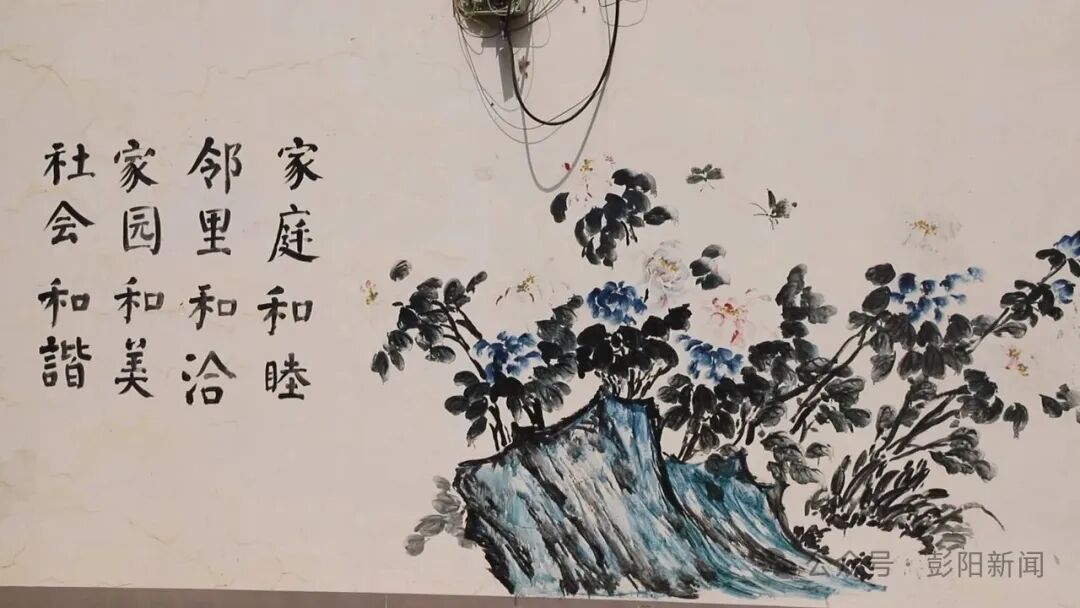 家庭和睦
邻里和洽
家园和美
社会和諧
公众号 彭阳新闻